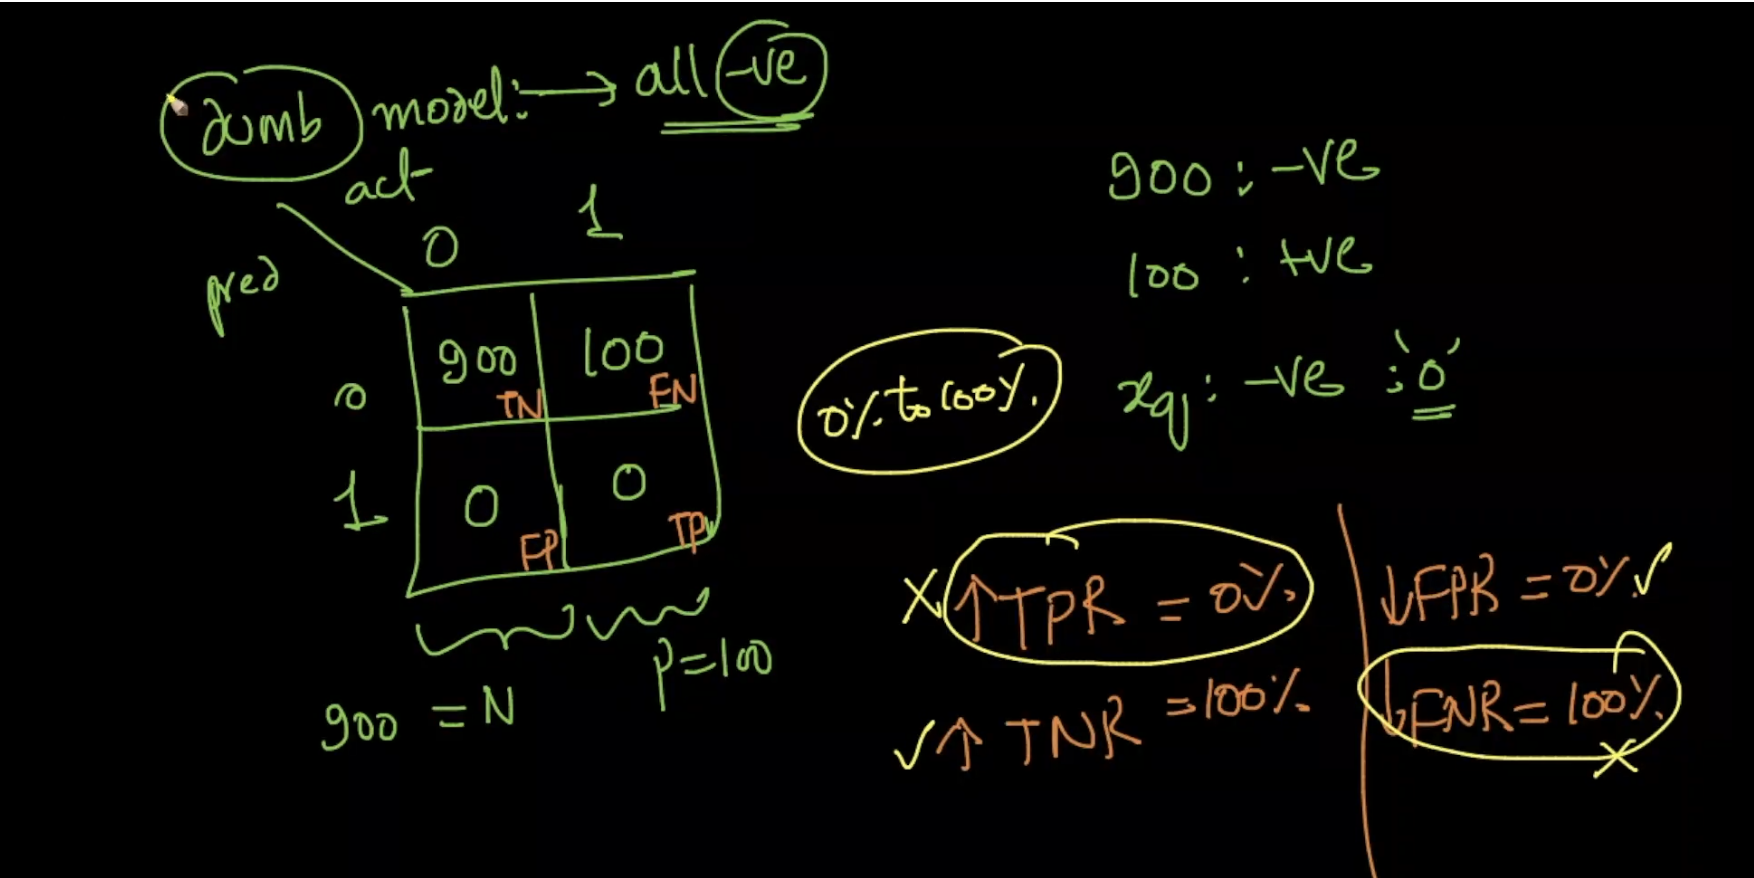 dumb model: → all -ve
act
pred
0 1
0 900 TN 100 FN
1 0 FP 0 TP
900 = N
P=100
900 : -ve
100 : +ve
xq : -ve : '0'
0% to 100%.
X ↑ TPR = 0%.
✓ ↑ TNR = 100%.
↓ FPR = 0% ✓
↓ FNR = 100%. X